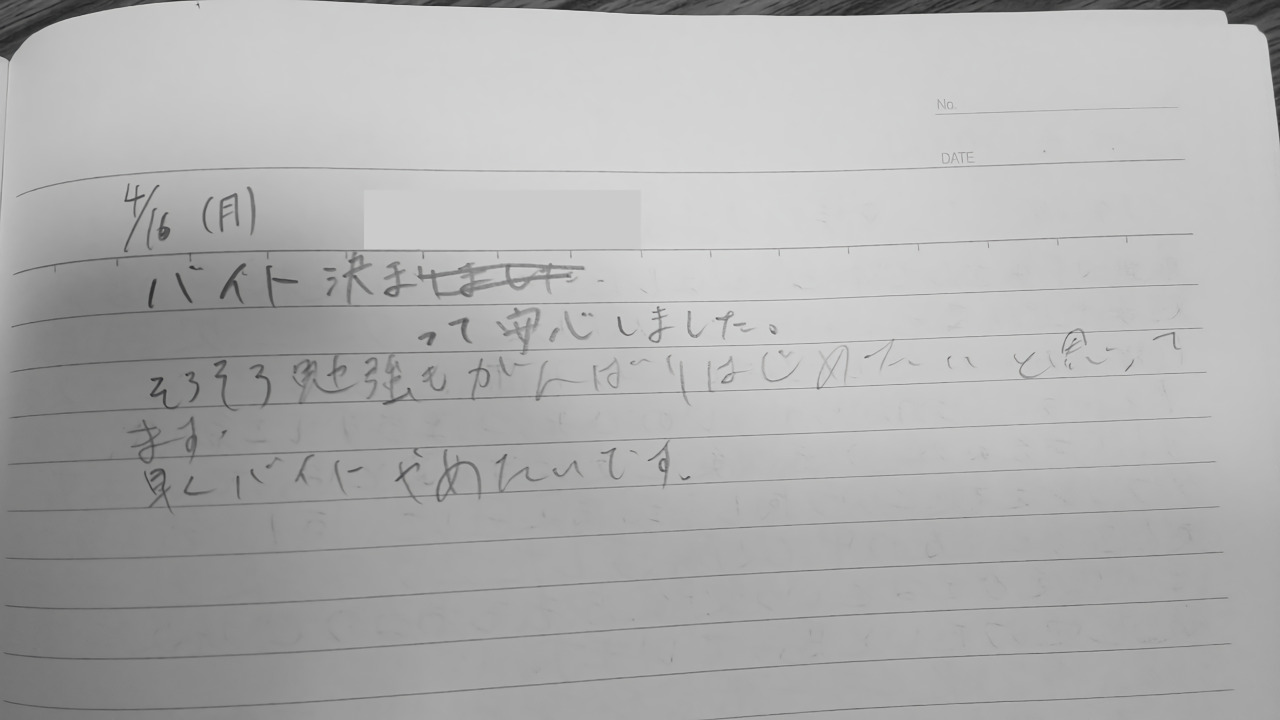 No.
DATE
4/16 (月)
バイト決まりました
って安心しました。
そろそろ勉強もがんばりはじめたいと思って
ます。
早くバイトやめたいです。